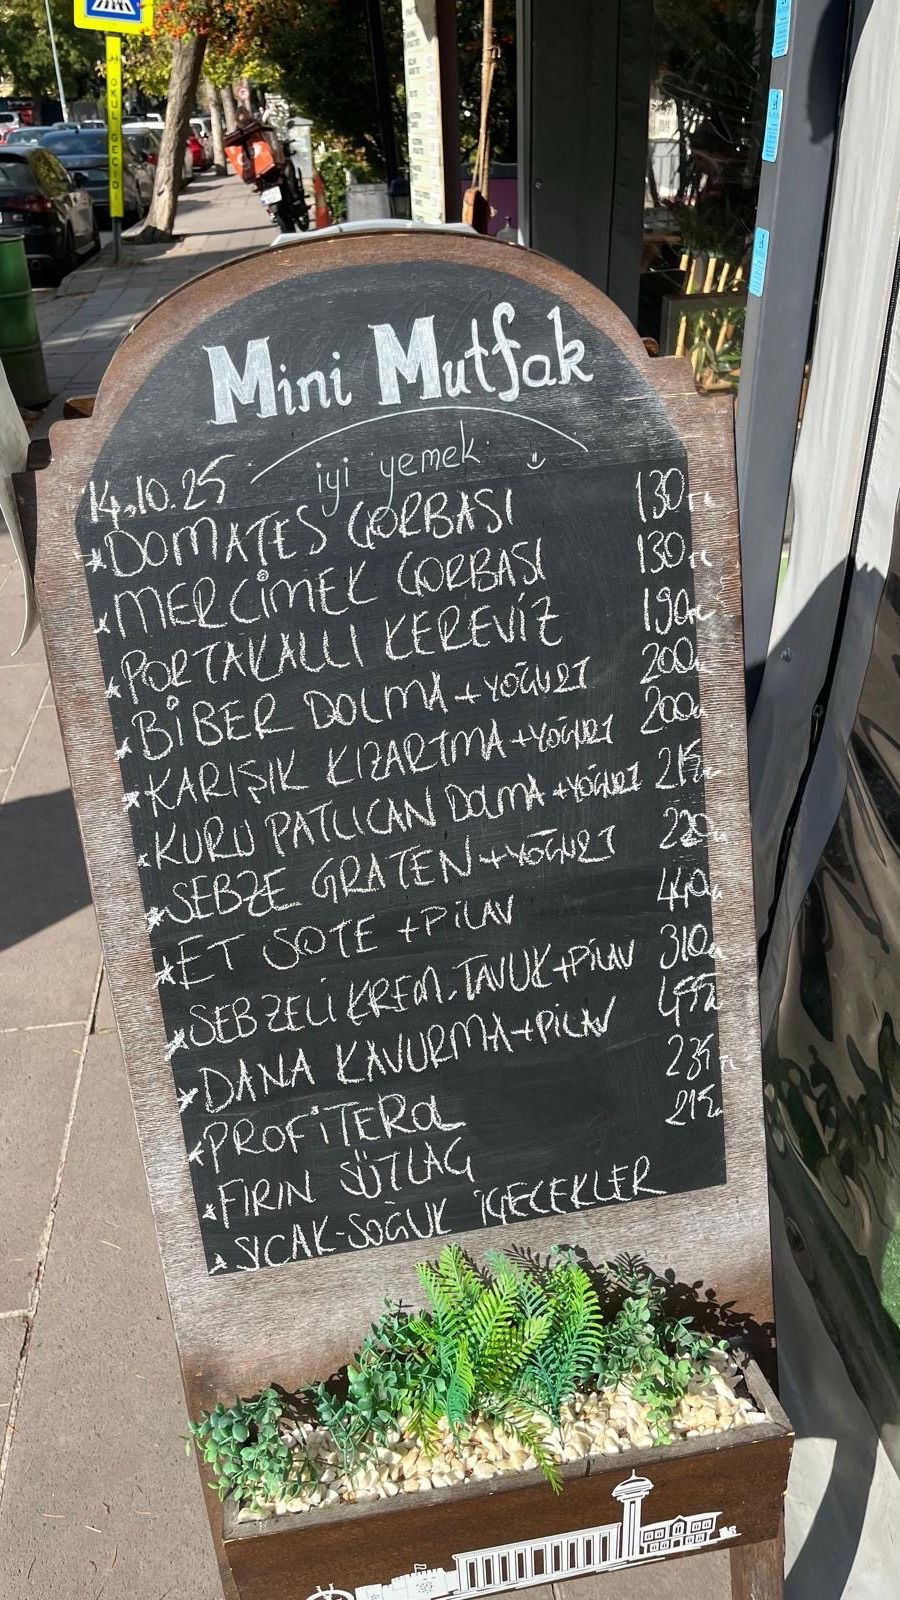 OKUL GEÇİDİ
Mini Mutfak
iyi yemek
14.10.25
*DOMATES ÇORBASI 130TL
*MERCİMEK ÇORBASI 130TL
*PORTAKALLI KEREVİZ 190TL
*BİBER DOLMA+YOĞURT 200TL
*KARIŞIK KIZARTMA+YOĞURT 200TL
*KURU PATLICAN DOLMA+YOĞURT 215TL
*SEBZE GRATEN+YOĞURT 220TL
*ET SOTE +PİLAV 440TL
*SEBZELİ KREM. TAVUK+PİLAV 310TL
*DANA KAVURMA+PİLAV 455TL
*PROFİTEROL 235TL
*FIRIN SÜTLAÇ 215TL
*SICAK-SOĞUK İÇECEKLER